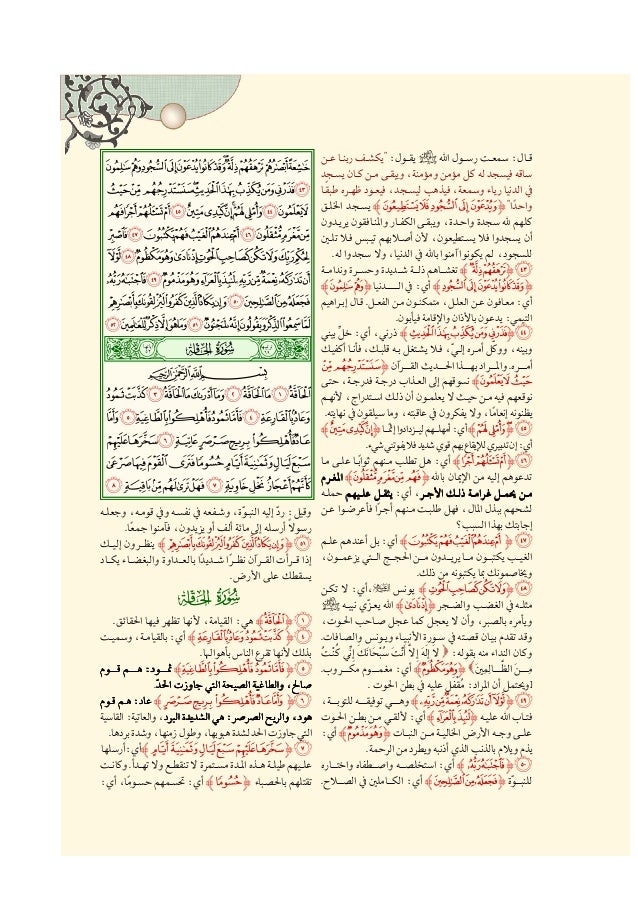 قال: سمعت رسول الله ﷺ يقول: "يكشف ربنا عن
ساقه فيسجد له كل مؤمن ومؤمنة، ويبقى من كان يسجد
في الدنيا رياء وسمعة، فيذهب ليسجد، فيعود ظهره طبقًا
واحدًا" ﴿وَيُدْعَوْنَ إِلَى ٱلسُّجُودِ فَلَا يَسْتَطِيعُونَ﴾ يسجد الخلق
كلهم لله سجدة واحدة، ويبقى الكفار والمنافقون يريدون
أن يسجدوا فلا يستطيعون، لأن أصلابهم تيبس فلا تلين
للسجود، لم يكونوا آمنوا بالله في الدنيا، ولا سجدوا له.
٤٣ ﴿تَرْهَقُهُمْ ذِلَّةٌ﴾ تغشاهم ذلة شديدة وحسرة وندامة
﴿وَقَدْ كَانُوا۟ يُدْعَوْنَ إِلَى ٱلسُّجُودِ﴾ أي: في الدنيا ﴿وَهُمْ سَٰلِمُونَ﴾
أي: معافون عن العلل، متمكنون من الفعل. قال إبراهيم
التيمي: يدعون بالأذان والإقامة فيأبون.
٤٤ ﴿فَذَرْنِى وَمَن يُكَذِّبُ بِهَٰذَا ٱلْحَدِيثِ﴾ ذرني، أي: خلِّ بيني
وبينه، ووكّل أمره إلي، فلا يشتغل به قلبك، فأنا أكفيك
أمره. والمراد بهذا الحديث القرآن ﴿سَنَسْتَدْرِجُهُم مِّنْ
حَيْثُ لَا يَعْلَمُونَ﴾ نسوقهم إلى العذاب درجة فدرجة، حتى
نوقعهم فيه من حيث لا يعلمون أن ذلك استدراج، لأنهم
يظنونه إنعامًا، ولا يفكرون في عاقبته، وما سيلقون في نهايته.
٤٥ ﴿وَأُمْلِى لَهُمْ﴾ أي: أمهلهم ليزدادوا إثمًا ﴿إِنَّ كَيْدِى مَتِينٌ﴾
أي: إن تدبيري للإيقاع بهم قوي شديد فلا يفوتني شيء.
٤٦ ﴿أَمْ تَسْـَٔلُهُمْ أَجْرًا﴾ أي: هل تطلب منهم ثوابًا على ما
تدعوهم إليه من الإيمان بالله ﴿فَهُم مِّن مَّغْرَمٍ مُّثْقَلُونَ﴾ المغرم
من يحمل غرامة ذلك الأجر، أي: يثقل عليهم حمله
لشحهم ببذل المال، فهل طلبت منهم أجرًا فأعرضوا عن
إجابتك بهذا السبب؟
٤٧ ﴿أَمْ عِندَهُمُ ٱلْغَيْبُ فَهُمْ يَكْتُبُونَ﴾ أي: بل أعندهم علم
الغيب يكتبون ما يريدون من الحجج التي يزعمون،
ويخاصمونك بما يكتبونه من ذلك.
٤٨ ﴿وَلَا تَكُن كَصَاحِبِ ٱلْحُوتِ﴾ يونس، أي: لا تكن
مثله في الغضب والضجر ﴿إِذْ نَادَىٰ﴾ الله يعزّي نبيه ﷺ
ويأمره بالصبر، وأن لا يعجل كما عجل صاحب الحوت،
وقد تقدم بيان قصته في سورة الأنبياء ويونس والصافات.
وكان النداء منه بقوله: ﴿لَا إِلَهَ إِلَّا أَنْتَ سُبْحَانَكَ إِنِّي كُنْتُ
مِنَ الظَّالِمِينَ﴾ ﴿وَهُوَ مَكْظُومٌ﴾ أي: مغموم مكروب.
[ويحتمل أن المراد: مُقْفَل عليه في بطن الحوت.
٤٩ ﴿لَّوْلَآ أَن تَدَٰرَكَهُۥ نِعْمَةٌ مِّن رَّبِّهِۦ﴾ وهي توفيقه للتوبة،
فتاب الله عليه ﴿لَنُبِذَ بِٱلْعَرَآءِ﴾ أي: لألقي من بطن الحوت
على وجه الأرض الخالية من النبات ﴿وَهُوَ مَذْمُومٌ﴾ أي:
يذم ويلام بالذنب الذي أذنبه ويطرد من الرحمة.
٥٠ ﴿فَٱجْتَبَٰهُ رَبُّهُۥ﴾ أي: استخلصه واصطفاه واختاره
للنبوّة ﴿فَجَعَلَهُۥ مِنَ ٱلصَّٰلِحِينَ﴾ أي: الكاملين في الصلاح.
خَٰشِعَةً أَبْصَٰرُهُمْ تَرْهَقُهُمْ ذِلَّةٌ وَقَدْ كَانُوا۟ يُدْعَوْنَ إِلَى ٱلسُّجُودِ وَهُمْ سَٰلِمُونَ
٤٣ فَذَرْنِى وَمَن يُكَذِّبُ بِهَٰذَا ٱلْحَدِيثِ سَنَسْتَدْرِجُهُم مِّنْ حَيْثُ
لَا يَعْلَمُونَ ٤٤ وَأُمْلِى لَهُمْ إِنَّ كَيْدِى مَتِينٌ ٤٥ أَمْ تَسْـَٔلُهُمْ أَجْرًا فَهُم
مِّن مَّغْرَمٍ مُّثْقَلُونَ ٤٦ أَمْ عِندَهُمُ ٱلْغَيْبُ فَهُمْ يَكْتُبُونَ ٤٧ فَٱصْبِرْ
لِحُكْمِ رَبِّكَ وَلَا تَكُن كَصَاحِبِ ٱلْحُوتِ إِذْ نَادَىٰ وَهُوَ مَكْظُومٌ ٤٨ لَّوْلَآ
أَن تَدَٰرَكَهُۥ نِعْمَةٌ مِّن رَّبِّهِۦ لَنُبِذَ بِٱلْعَرَآءِ وَهُوَ مَذْمُومٌ ٤٩ فَٱجْتَبَٰهُ رَبُّهُۥ
فَجَعَلَهُۥ مِنَ ٱلصَّٰلِحِينَ ٥٠ وَإِن يَكَادُ ٱلَّذِينَ كَفَرُوا۟ لَيُزْلِقُونَكَ بِأَبْصَٰرِهِمْ
لَمَّا سَمِعُوا۟ ٱلذِّكْرَ وَيَقُولُونَ إِنَّهُۥ لَمَجْنُونٌ ٥١ وَمَا هُوَ إِلَّا ذِكْرٌ لِّلْعَٰلَمِينَ ٥٢
سُورَةُ الحَاقَّةِ
بِسْمِ ٱللَّهِ ٱلرَّحْمَٰنِ ٱلرَّحِيمِ
ٱلْحَآقَّةُ ١ مَا ٱلْحَآقَّةُ ٢ وَمَآ أَدْرَىٰكَ مَا ٱلْحَآقَّةُ ٣ كَذَّبَتْ ثَمُودُ
وَعَادٌۢ بِٱلْقَارِعَةِ ٤ فَأَمَّا ثَمُودُ فَأُهْلِكُوا۟ بِٱلطَّاغِيَةِ ٥ وَأَمَّا
عَادٌ فَأُهْلِكُوا۟ بِرِيحٍ صَرْصَرٍ عَاتِيَةٍ ٦ سَخَّرَهَا عَلَيْهِمْ
سَبْعَ لَيَالٍ وَثَمَٰنِيَةَ أَيَّامٍ حُسُومًا فَتَرَى ٱلْقَوْمَ فِيهَا صَرْعَىٰ
كَأَنَّهُمْ أَعْجَازُ نَخْلٍ خَاوِيَةٍ ٧ فَهَلْ تَرَىٰ لَهُم مِّنۢ بَاقِيَةٍ ٨
وقيل: ردّ إليه النبوّة، وشفعه في نفسه وفي قومه، وجعله
رسولًا أرسله إلى مائة ألف أو يزيدون، فآمنوا جمعًا.
٥١ ﴿وَإِن يَكَادُ ٱلَّذِينَ كَفَرُوا۟ لَيُزْلِقُونَكَ بِأَبْصَٰرِهِمْ﴾ ينظرون إليك
إذا قرأت القرآن نظرًا شديدًا بالعداوة والبغضاء يكاد
يسقطك على الأرض.
سُورَةُ الحَاقَّةِ
١ ﴿ٱلْحَآقَّةُ﴾ هي: القيامة، لأنها تظهر فيها الحقائق.
٤ ﴿كَذَّبَتْ ثَمُودُ وَعَادٌۢ بِٱلْقَارِعَةِ﴾ أي: بالقيامة، وسميت
بذلك لأنها تقرع الناس بأهوالها.
٥ ﴿فَأَمَّا ثَمُودُ فَأُهْلِكُوا۟ بِٱلطَّاغِيَةِ﴾ ثمود: هم قوم
صالح، والطاغية الصيحة التي جاوزت الحدّ.
٦ ﴿وَأَمَّا عَادٌ فَأُهْلِكُوا۟ بِرِيحٍ صَرْصَرٍ﴾ عاد: هم قوم
هود، والريح الصرصر: هي الشديدة البرد، والعاتية: القاسية
التي جاوزت الحد لشدة هبوبها، وطول زمنها، وشدة بردها.
٧ ﴿سَخَّرَهَا عَلَيْهِمْ سَبْعَ لَيَالٍ وَثَمَٰنِيَةَ أَيَّامٍ﴾ أي: أرسلها
عليهم طيلة هذه المدة مستمرة لا تنقطع ولا تهدأ. وكانت
تقتلهم بالحصباء ﴿حُسُومًا﴾ أي: تحسمهم حسومًا، أي: